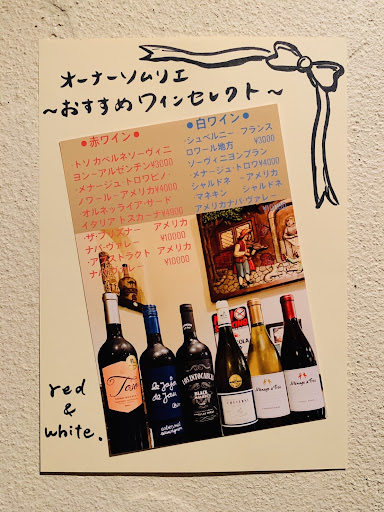 オーナーソムリエ
～おすすめワインセレクト～
●赤ワイン●
・トソカベルネソーヴィニ
ヨン−アルゼンチン¥3000
・メナージュ・トロワピノ・
ノワール・アメリカ¥4000
オルネッライア・サード
イタリアトスカーナ¥4000
・ザ・プリズナー アメリカ
ナパ・ヴァレー ¥10000
・アブストラクト アメリカ
ナパ・ヴァレー ¥10000
●白ワイン●
・シュベルニー フランス
ロワール地方 ¥3000
ソーヴィニヨンブラン
・メナージュ・トロワ¥4000
シャルドネ −アメリカ
・マネキン シャルドネ
アメリカナパ・ヴァレー
¥10000
Toso
le jaja
de jau
cabernet
sauvignon
LOS INTOCABLES
BLACK
MALBEC
CHEVERNY
Menage à Trois
Menage à Trois
red
&
white.